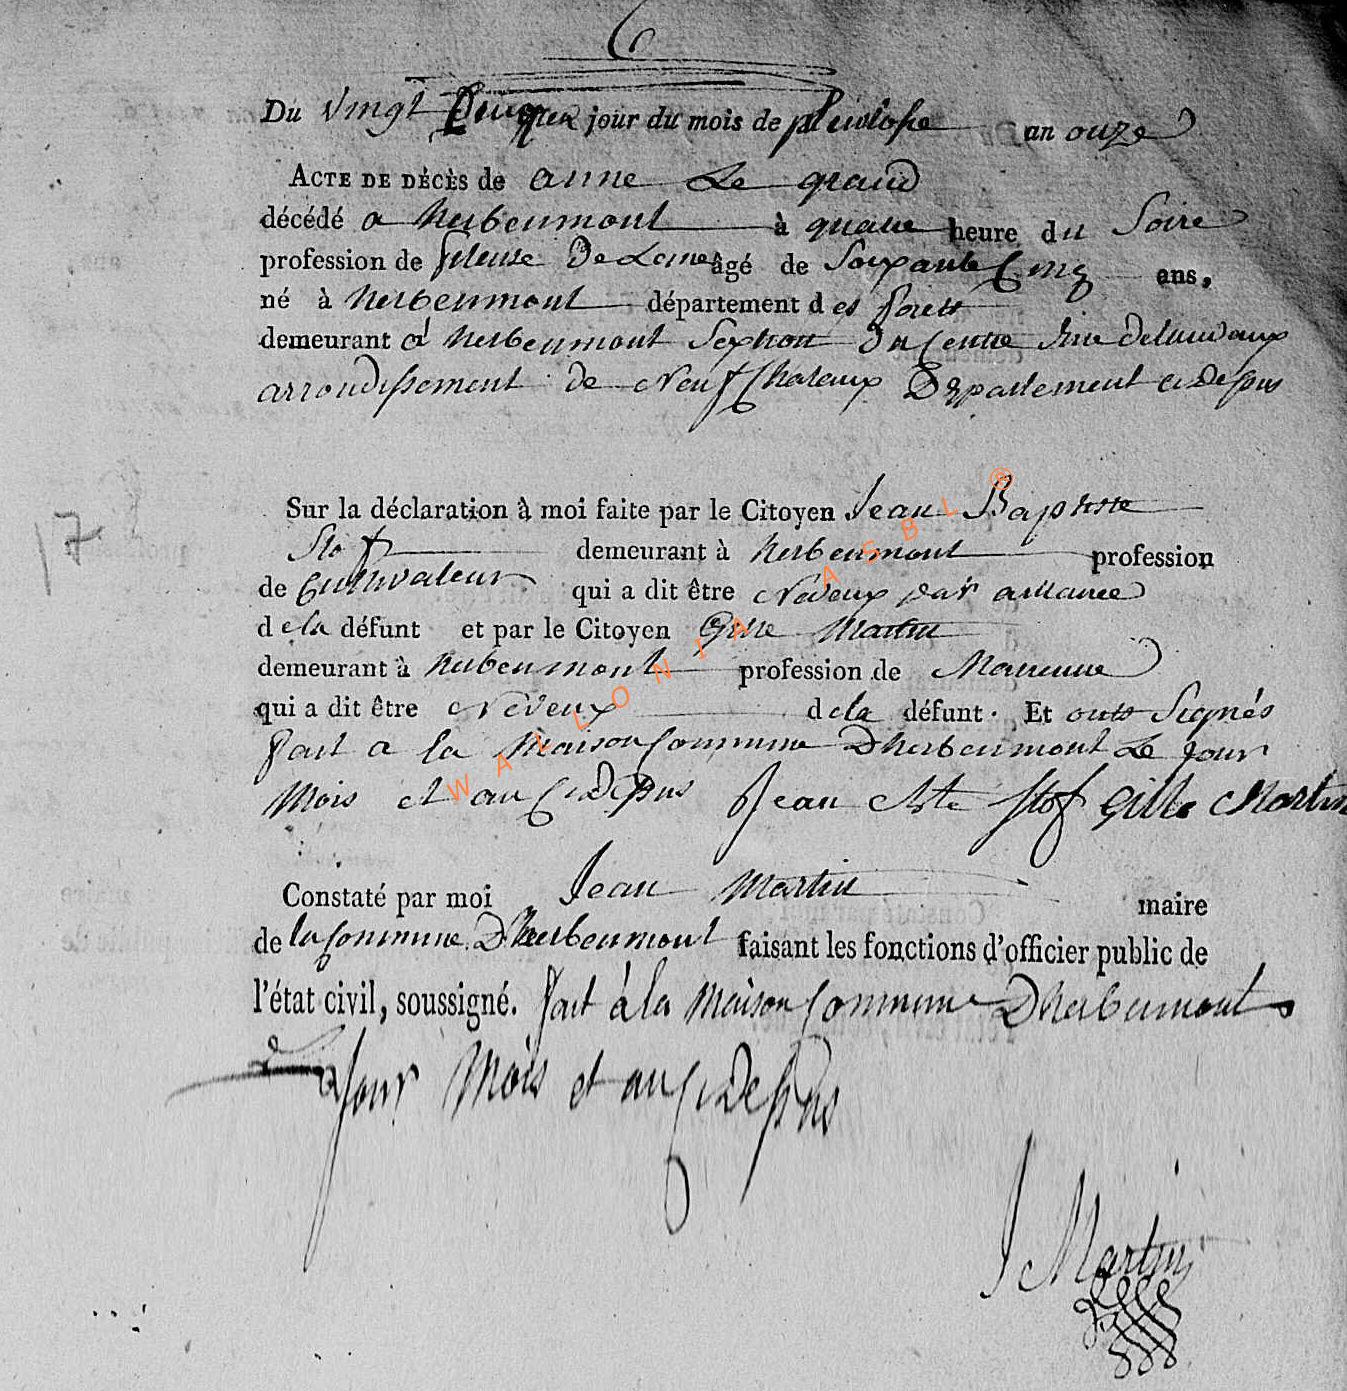 6
Du Vingt jour du mois de pluviose an onze
ACTE DE DÉCÈS de anne Le grand
décédé a herbeumont à quatre heure du Soire
profession de fileuse De Laine âgé de Soixante Cinq ans,
né à herbeumont département des forets
demeurant à herbeumont Sextion du Centre
arrondissement de Neufchateaux Departement ci Dessus
Sur la déclaration à moi faite par le Citoyen Jean Baptiste
Stof demeurant à herbeumont profession
de Cultivateur qui a dit être Neveux par alliance
de la défunt et par le Citoyen Gille Martin
demeurant à herbeumont profession de
qui a dit être Neveux de la défunt. Et onts Signés
fait a la Maison Commune D'herbeumont Le jour
Mois et an Ci Dessus Jean Bte Stof Gille Martin
Constaté par moi Jean Martin maire
de la Commune D'herbeumont faisant les fonctions d'officier public de
l'état civil, soussigné. fait à la Maison Commune D'herbeumont
jour Mois et an Ci Dessus
J Martin
17
WALLONIA ASBL ®